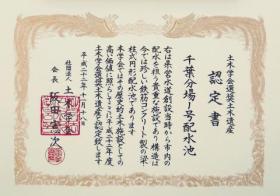 土木学会選奨土木遺産
認定書
千葉分場1号配水池
右は県営水道創設当時から市内の
配水を担う貴重な施設であり構造は
今では珍しい鉄筋コンクリート製の梁
柱式円形配水池であります
本学会ではその歴史的土木施設としての
高い価値に照らしてここに平成二十三年度
土木学会選奨土木遺産と認定致します
平成二十三年十一月十八日
社団法人 土木学会
会長